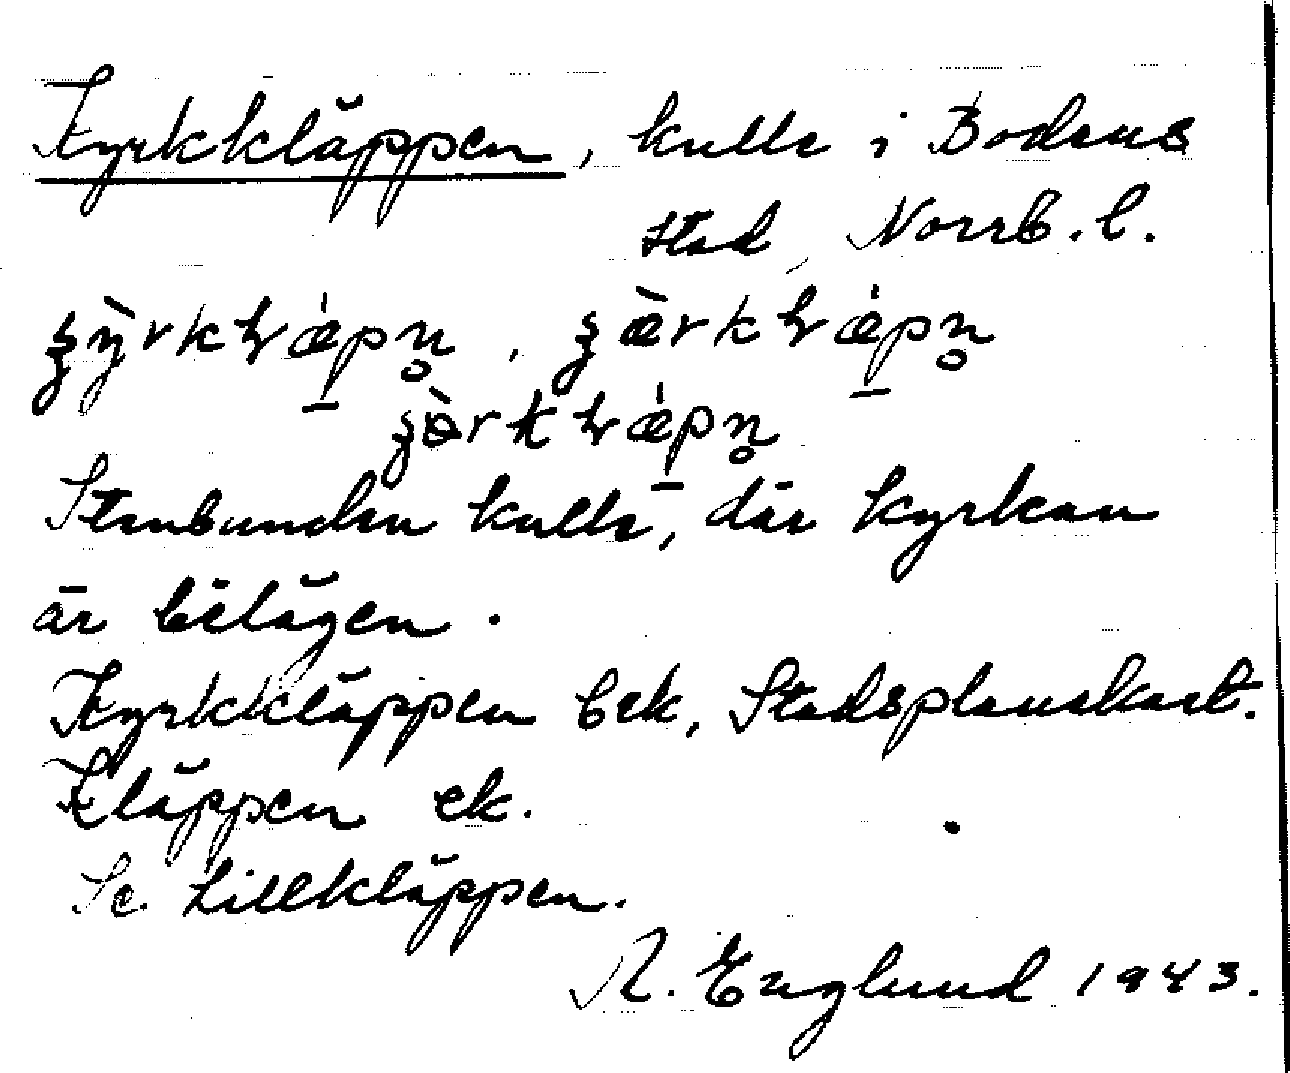 Kyrkkläppen, kulle i Bodens
stad, Norrb. l.
Stenbunden kulle, där kyrkan
är belägen.
Kyrkkläppen bek, Stadsplanekart.
Kläppen ek.
Se Lillkläppen.
R. Englund 1943.